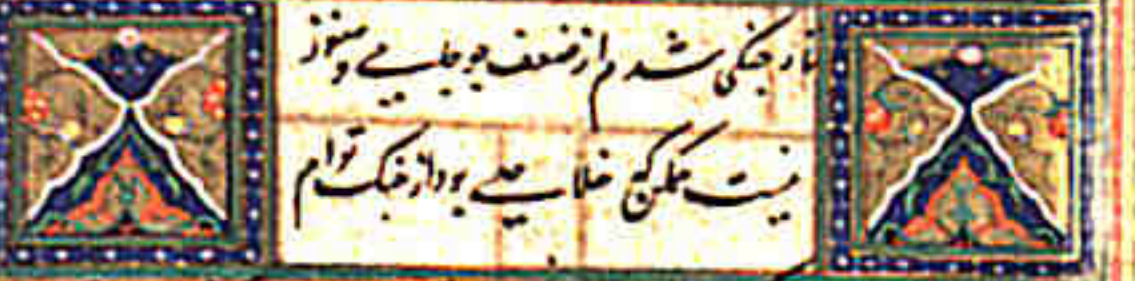 تار چنگی شدم از ضعف چو جامی و هنوز
نیست ممکن که خلاصی بود از چنگ توام